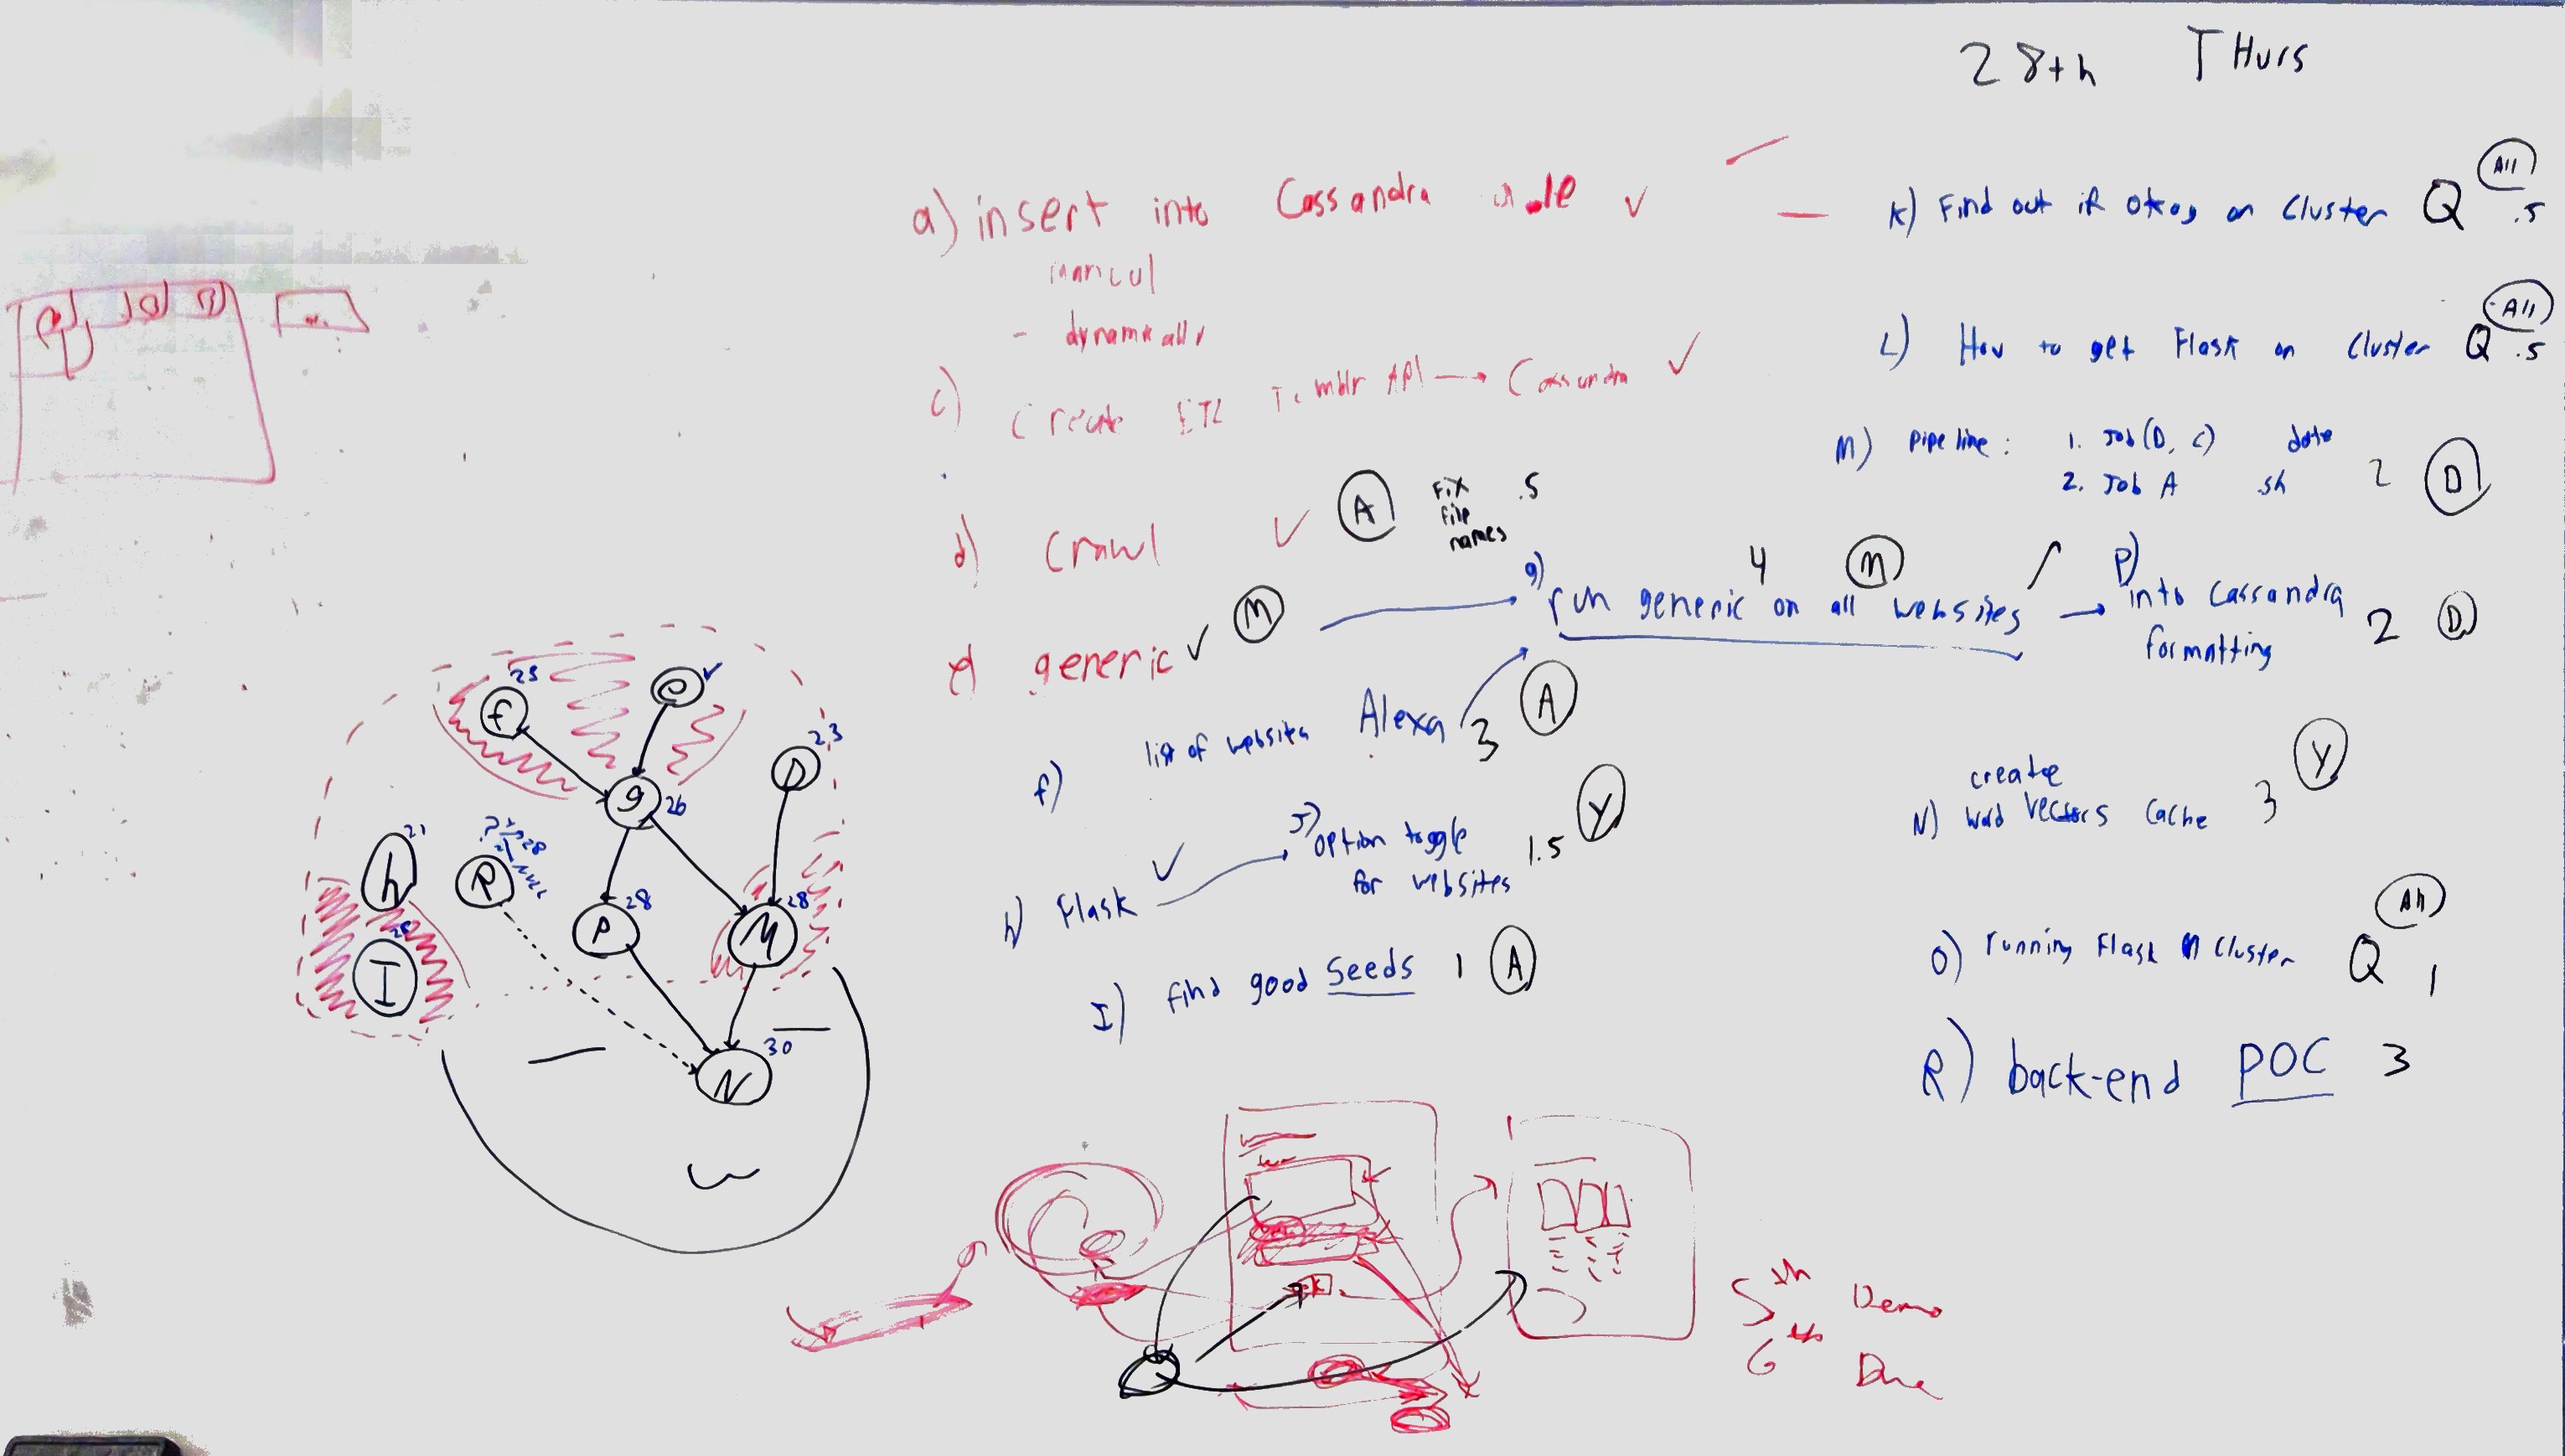 28th THurs
a) insert into Cassandra
manual
- dynamically
c) Create ETL Tumblr API → Cassandra ✓
d) Crawl ✓ A Fix .5
file
names
e) generic ✓ M
g) run generic on all websites 4 M
p) into Cassandra 2 D
formatting
f) list of websites Alexa 3 A
h) Flask ✓
J) option toggle 1.5 Y
for websites
I) find good Seeds 1 A
K) Find out if okay on Cluster Q All .5
L) How to get Flask on Cluster Q All .5
M) pipeline: 1. Job(D, C) date
2. Job A .sh 2 D
create
N) word vectors cache 3 Y
O) running Flask on Cluster Q All 1
R) back-end POC 3
f 25
e ✓
D 23
g 26
h 21
R 28
P 28
M 28
I
N 30
5th Demo
6th Due